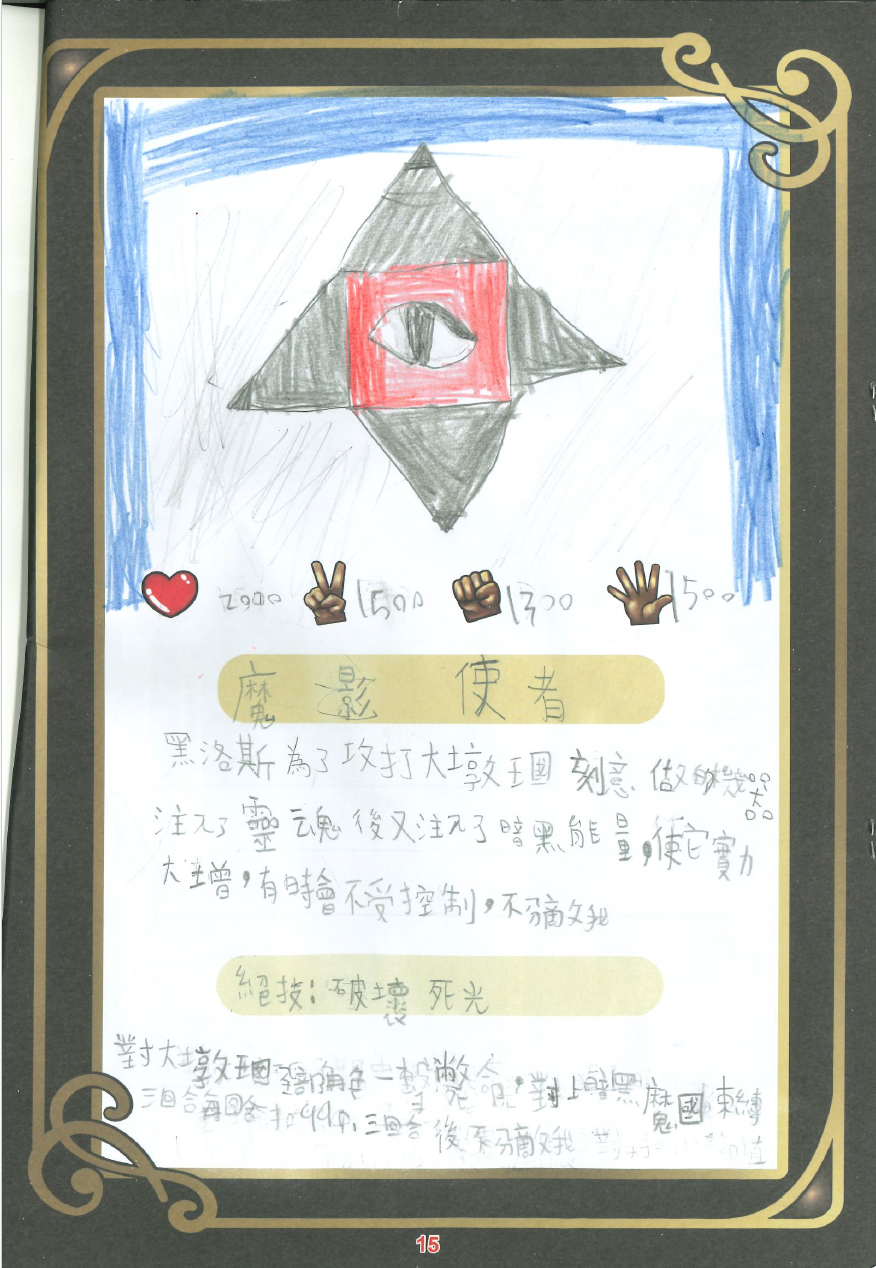 2900 1500 1300 1500
魔影使者
黑洛斯為了攻打大墩王國刻意做的機器
注入了靈魂後又注入了暗黑能量,使它實力
大增,有時會不受控制,不分敵我
絕技:破壞死光
對大墩王國 角色一 ,對上暗黑魔國
三回合每回合扣99 三回合後不分敵我
15